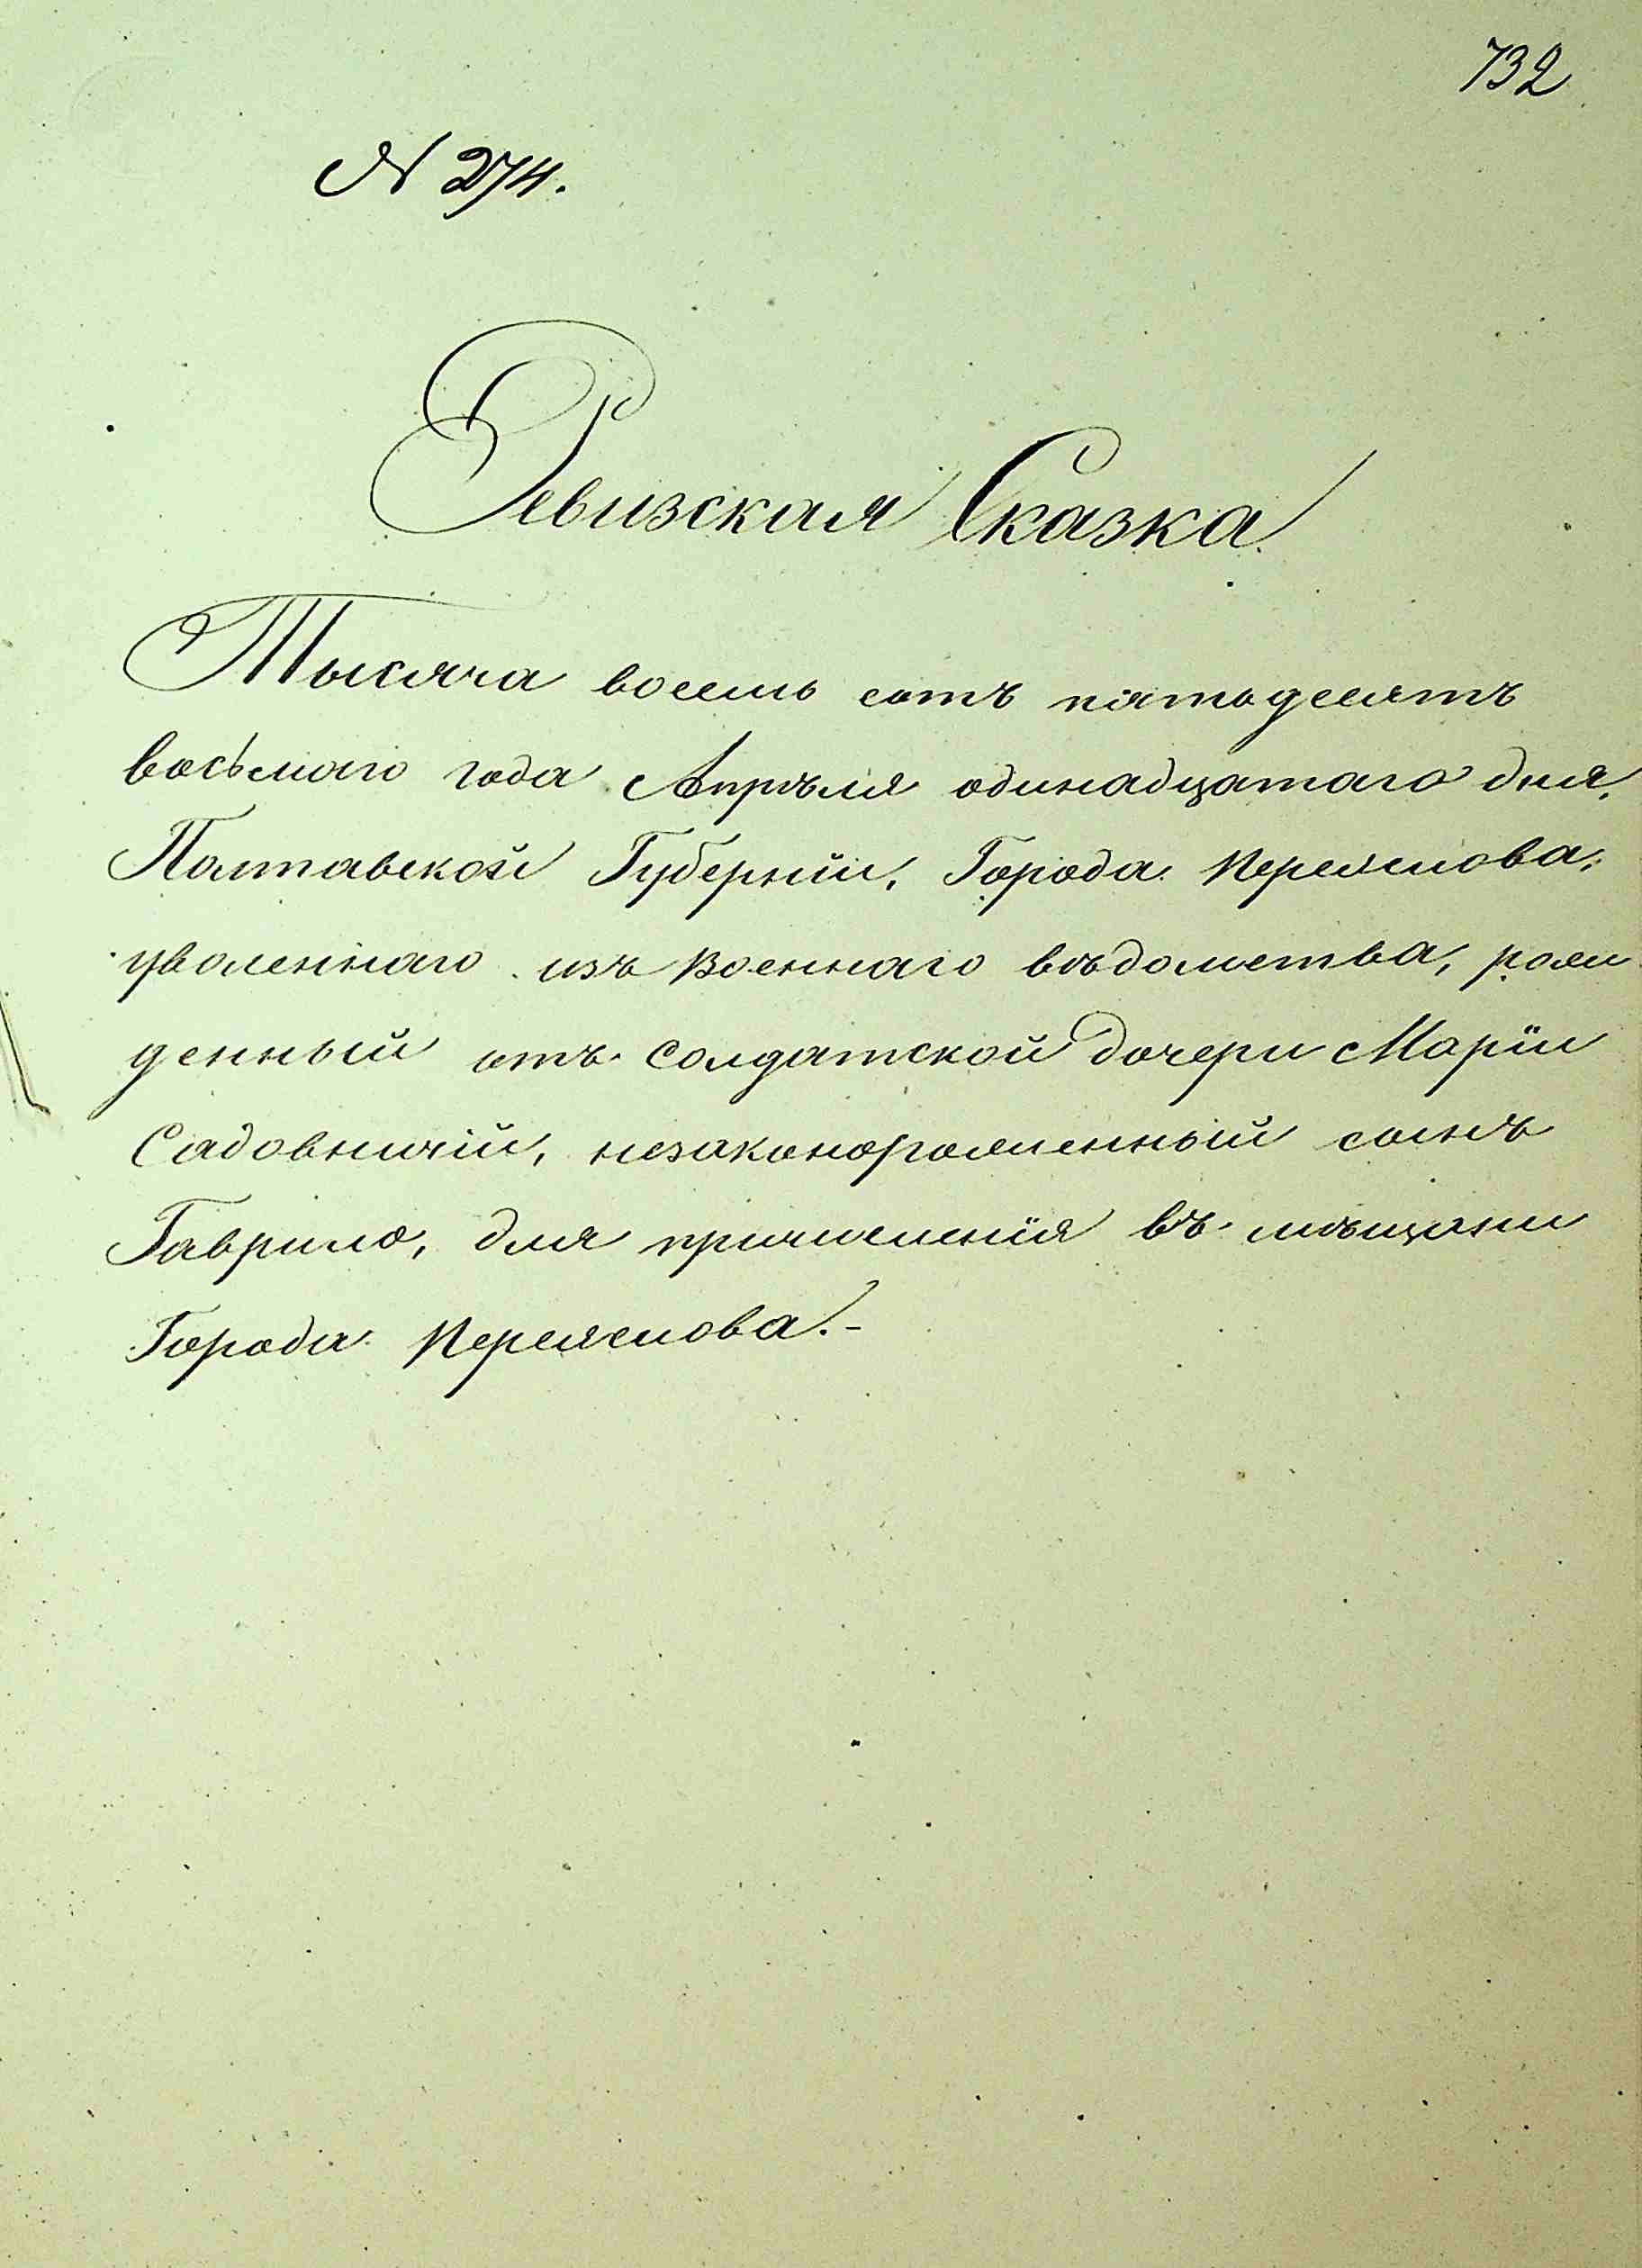 732
№ 274.
Ревизская Сказка
Тысяча восемь сотъ пятьдесятъ
восьмаго года Апрѣля одинадцатаго дня,
Полтавской Губерніи, Города Переяслова,
уволеннаго изъ военнаго вѣдомства, рож
денный отъ солдатской дочери Маріи
Садовничій, незаконорожденный сынъ
Гаврило, для причисленія въ мѣщани
Города Переяслова.-